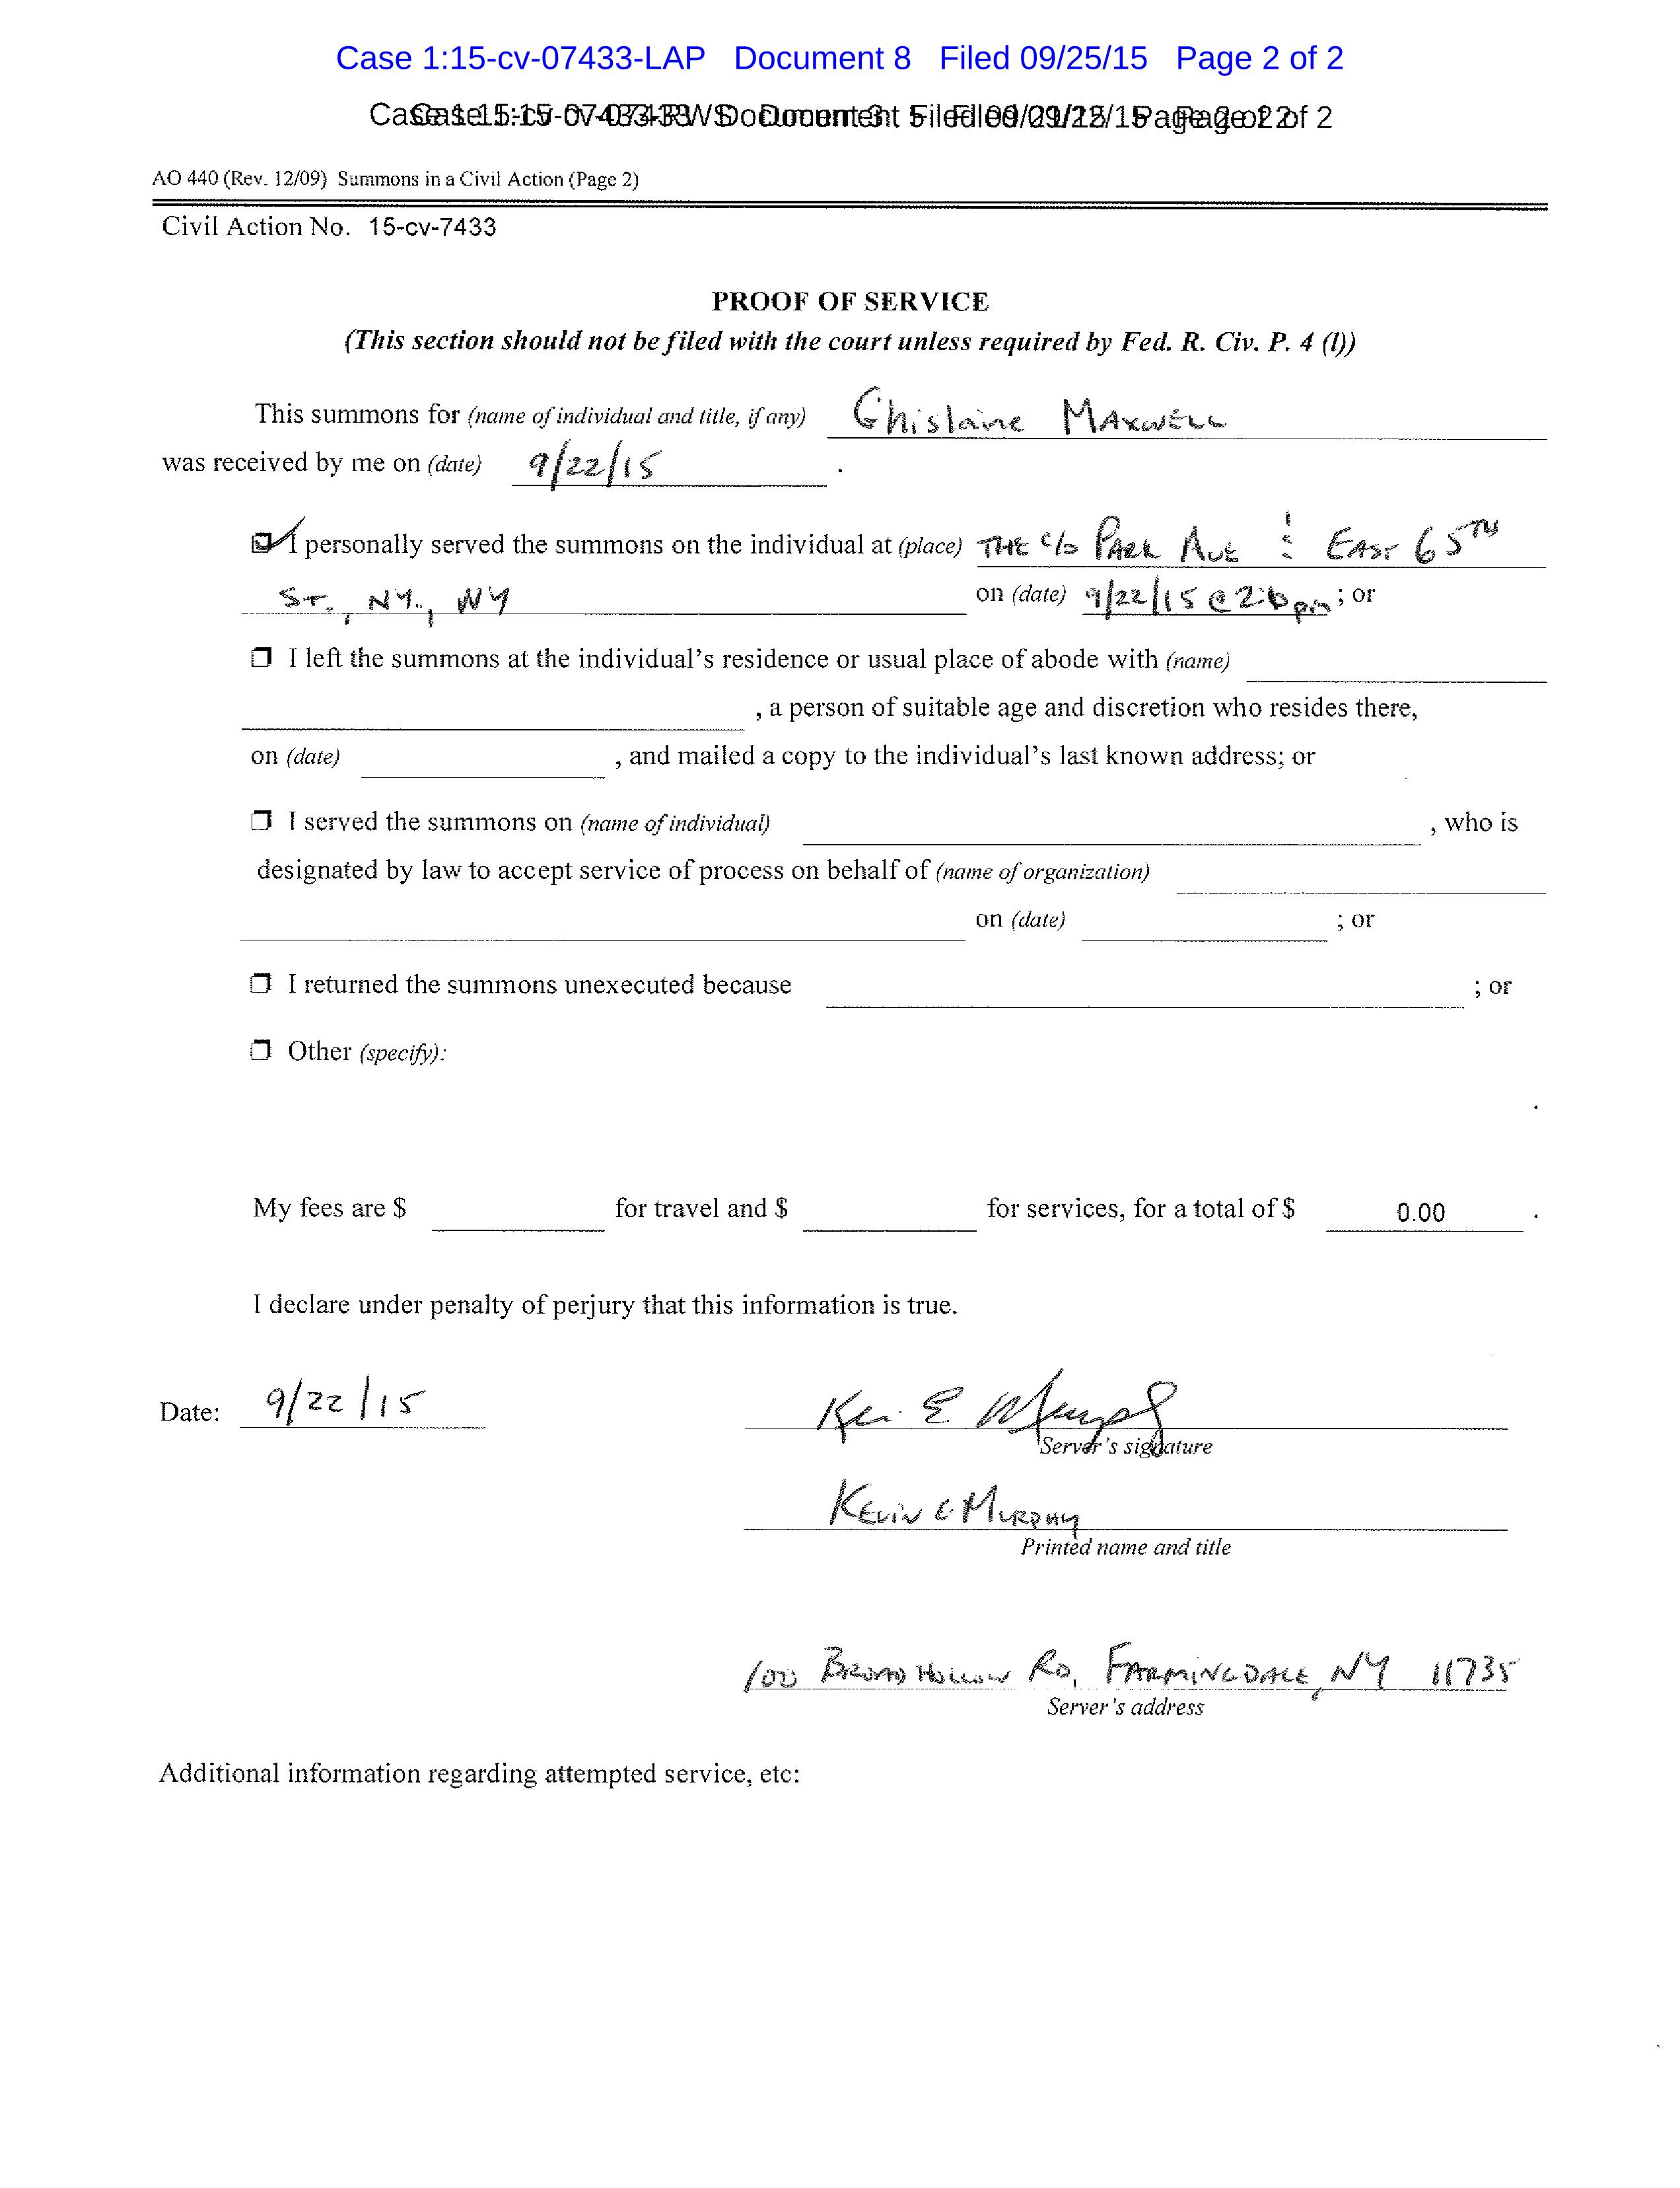 Case 1:15-cv-07433-LAP Document 8 Filed 09/25/15 Page 2 of 2
AO 440 (Rev. 12/09) Summons in a Civil Action (Page 2)
Civil Action No. 15-cv-7433
PROOF OF SERVICE
(This section should not be filed with the court unless required by Fed. R. Civ. P. 4 (l))
This summons for (name of individual and title, if any) Ghislaine MAXWELL
was received by me on (date) 9/22/15 .
I personally served the summons on the individual at (place) THE c/o PARK AVE & EAST 65TH
ST., NY., NY on (date) 9/22/15 @ pm ; or
I left the summons at the individual's residence or usual place of abode with (name)
, a person of suitable age and discretion who resides there,
on (date) , and mailed a copy to the individual's last known address; or
I served the summons on (name of individual) , who is
designated by law to accept service of process on behalf of (name of organization)
on (date) ; or
I returned the summons unexecuted because ; or
Other (specify):
.
My fees are $ for travel and $ for services, for a total of $ 0.00 .
I declare under penalty of perjury that this information is true.
Date: 9/22/15
Server's signature
KEVIN E. MURPHY
Printed name and title
100 BROAD HOLLOW RD, FARMINGDALE, NY 11735
Server's address
Additional information regarding attempted service, etc: